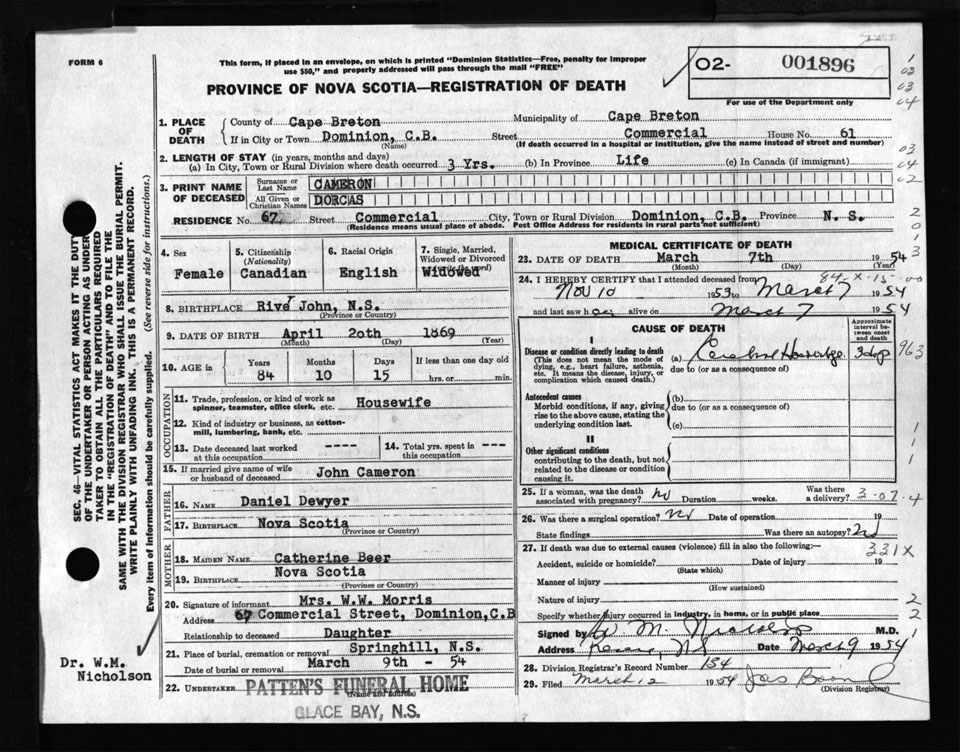 FORM 6
This form, if placed in an envelope, on which is printed "Dominion Statistics—Free, penalty for improper
use $50," and properly addressed will pass through the mail "FREE"
PROVINCE OF NOVA SCOTIA—REGISTRATION OF DEATH
O2- 001896
For use of the Department only
1
02
03
04
03
04
02
2
0
1
3
1. PLACE OF DEATH
County of Cape Breton Municipality of Cape Breton
If in City or Town Dominion, C.B. Street Commercial House No. 61
(Name) (If death occurred in a hospital or institution, give the name instead of street and number)
2. LENGTH OF STAY (in years, months and days)
(a) In City, Town or Rural Division where death occurred 3 Yrs. (b) In Province Life (c) In Canada (if immigrant)
3. PRINT NAME OF DECEASED
Surname or Last Name CAMERON
All Given or Christian Names DORCAS
RESIDENCE No. 67 Street Commercial City, Town or Rural Division Dominion, C.B. Province N. S.
(Residence means usual place of abode. Post Office Address for residents in rural parts not sufficient)
4. Sex
Female
5. Citizenship
(Nationality)
Canadian
6. Racial Origin
English
7. Single, Married,
Widowed or Divorced
Widowed
8. BIRTHPLACE River John, N.S.
(Province or Country)
9. DATE OF BIRTH April 20th 1869
(Month) (Day) (Year)
10. AGE in
Years Months Days If less than one day old
84 10 15 hrs. or min.
OCCUPATION
11. Trade, profession, or kind of work as
spinner, teamster, office clerk, etc. Housewife
12. Kind of industry or business, as cotton-
mill, lumbering, bank, etc.
13. Date deceased last worked
at this occupation ----
14. Total yrs. spent in
this occupation ----
15. If married give name of wife
or husband of deceased John Cameron
FATHER
16. Name Daniel Dewyer
17. Birthplace Nova Scotia
(Province or Country)
MOTHER
18. Maiden Name Catherine Beer
19. Birthplace Nova Scotia
(Province or Country)
20. Signature of informant Mrs. W.W. Morris
Address 67 Commercial Street, Dominion,C.B
Relationship to deceased Daughter
21. Place of burial, cremation or removal Springhill, N.S.
Date of burial or removal March 9th - 54
22. Undertaker PATTEN'S FUNERAL HOME
(Name and address)
GLACE BAY, N.S.
MEDICAL CERTIFICATE OF DEATH
23. DATE OF DEATH March 7th 1954
(Month) (Day) (Year)
84-X-15-00
24. I HEREBY CERTIFY that I attended deceased from
Nov 10 1953 to March 7 1954
and last saw her alive on March 7 1954
CAUSE OF DEATH
Approximate
interval be-
tween onset
and death
I
Disease or condition directly leading to death
(This does not mean the mode of
dying, e.g., heart failure, asthenia,
etc. It means the disease, injury, or
complication which caused death.)
(a) Cerebral
due to (or as a consequence of)
963
Antecedent causes
Morbid conditions, if any, giving
rise to the above cause, stating the
underlying condition last.
(b)
due to (or as a consequence of)
(c)
II
Other significant conditions
contributing to the death, but not
related to the disease or condition
causing it.
1
1
1
25. If a woman, was the death
associated with pregnancy? No Duration weeks. Was there
a delivery? 3-07-4
26. Was there a surgical operation? No Date of operation 19
State findings Was there an autopsy? No
27. If death was due to external causes (violence) fill in also the following:— 331X
Accident, suicide or homicide? Date of injury 19
(State which)
Manner of injury
(How sustained)
Nature of injury 2
Specify whether injury occurred in industry, in home, or in public place 2
Signed by W. M. Nicholson M.D. 1
Address NS Date March 9 1954 1
28. Division Registrar's Record Number 134
29. Filed March 12 1954 Jas
(Division Registrar)
SEC. 46—VITAL STATISTICS ACT MAKES IT THE DUTY
OF THE UNDERTAKER OR PERSON ACTING AS UNDER-
TAKER TO OBTAIN ALL THE PARTICULARS REQUIRED
IN THE "REGISTRATION OF DEATH" AND TO FILE THE
SAME WITH THE DIVISION REGISTRAR WHO SHALL ISSUE THE BURIAL PERMIT.
WRITE PLAINLY WITH UNFADING INK. THIS IS A PERMANENT RECORD.
Every item of information should be carefully supplied. (See reverse side for instructions.)
Dr. W.M.
Nicholson